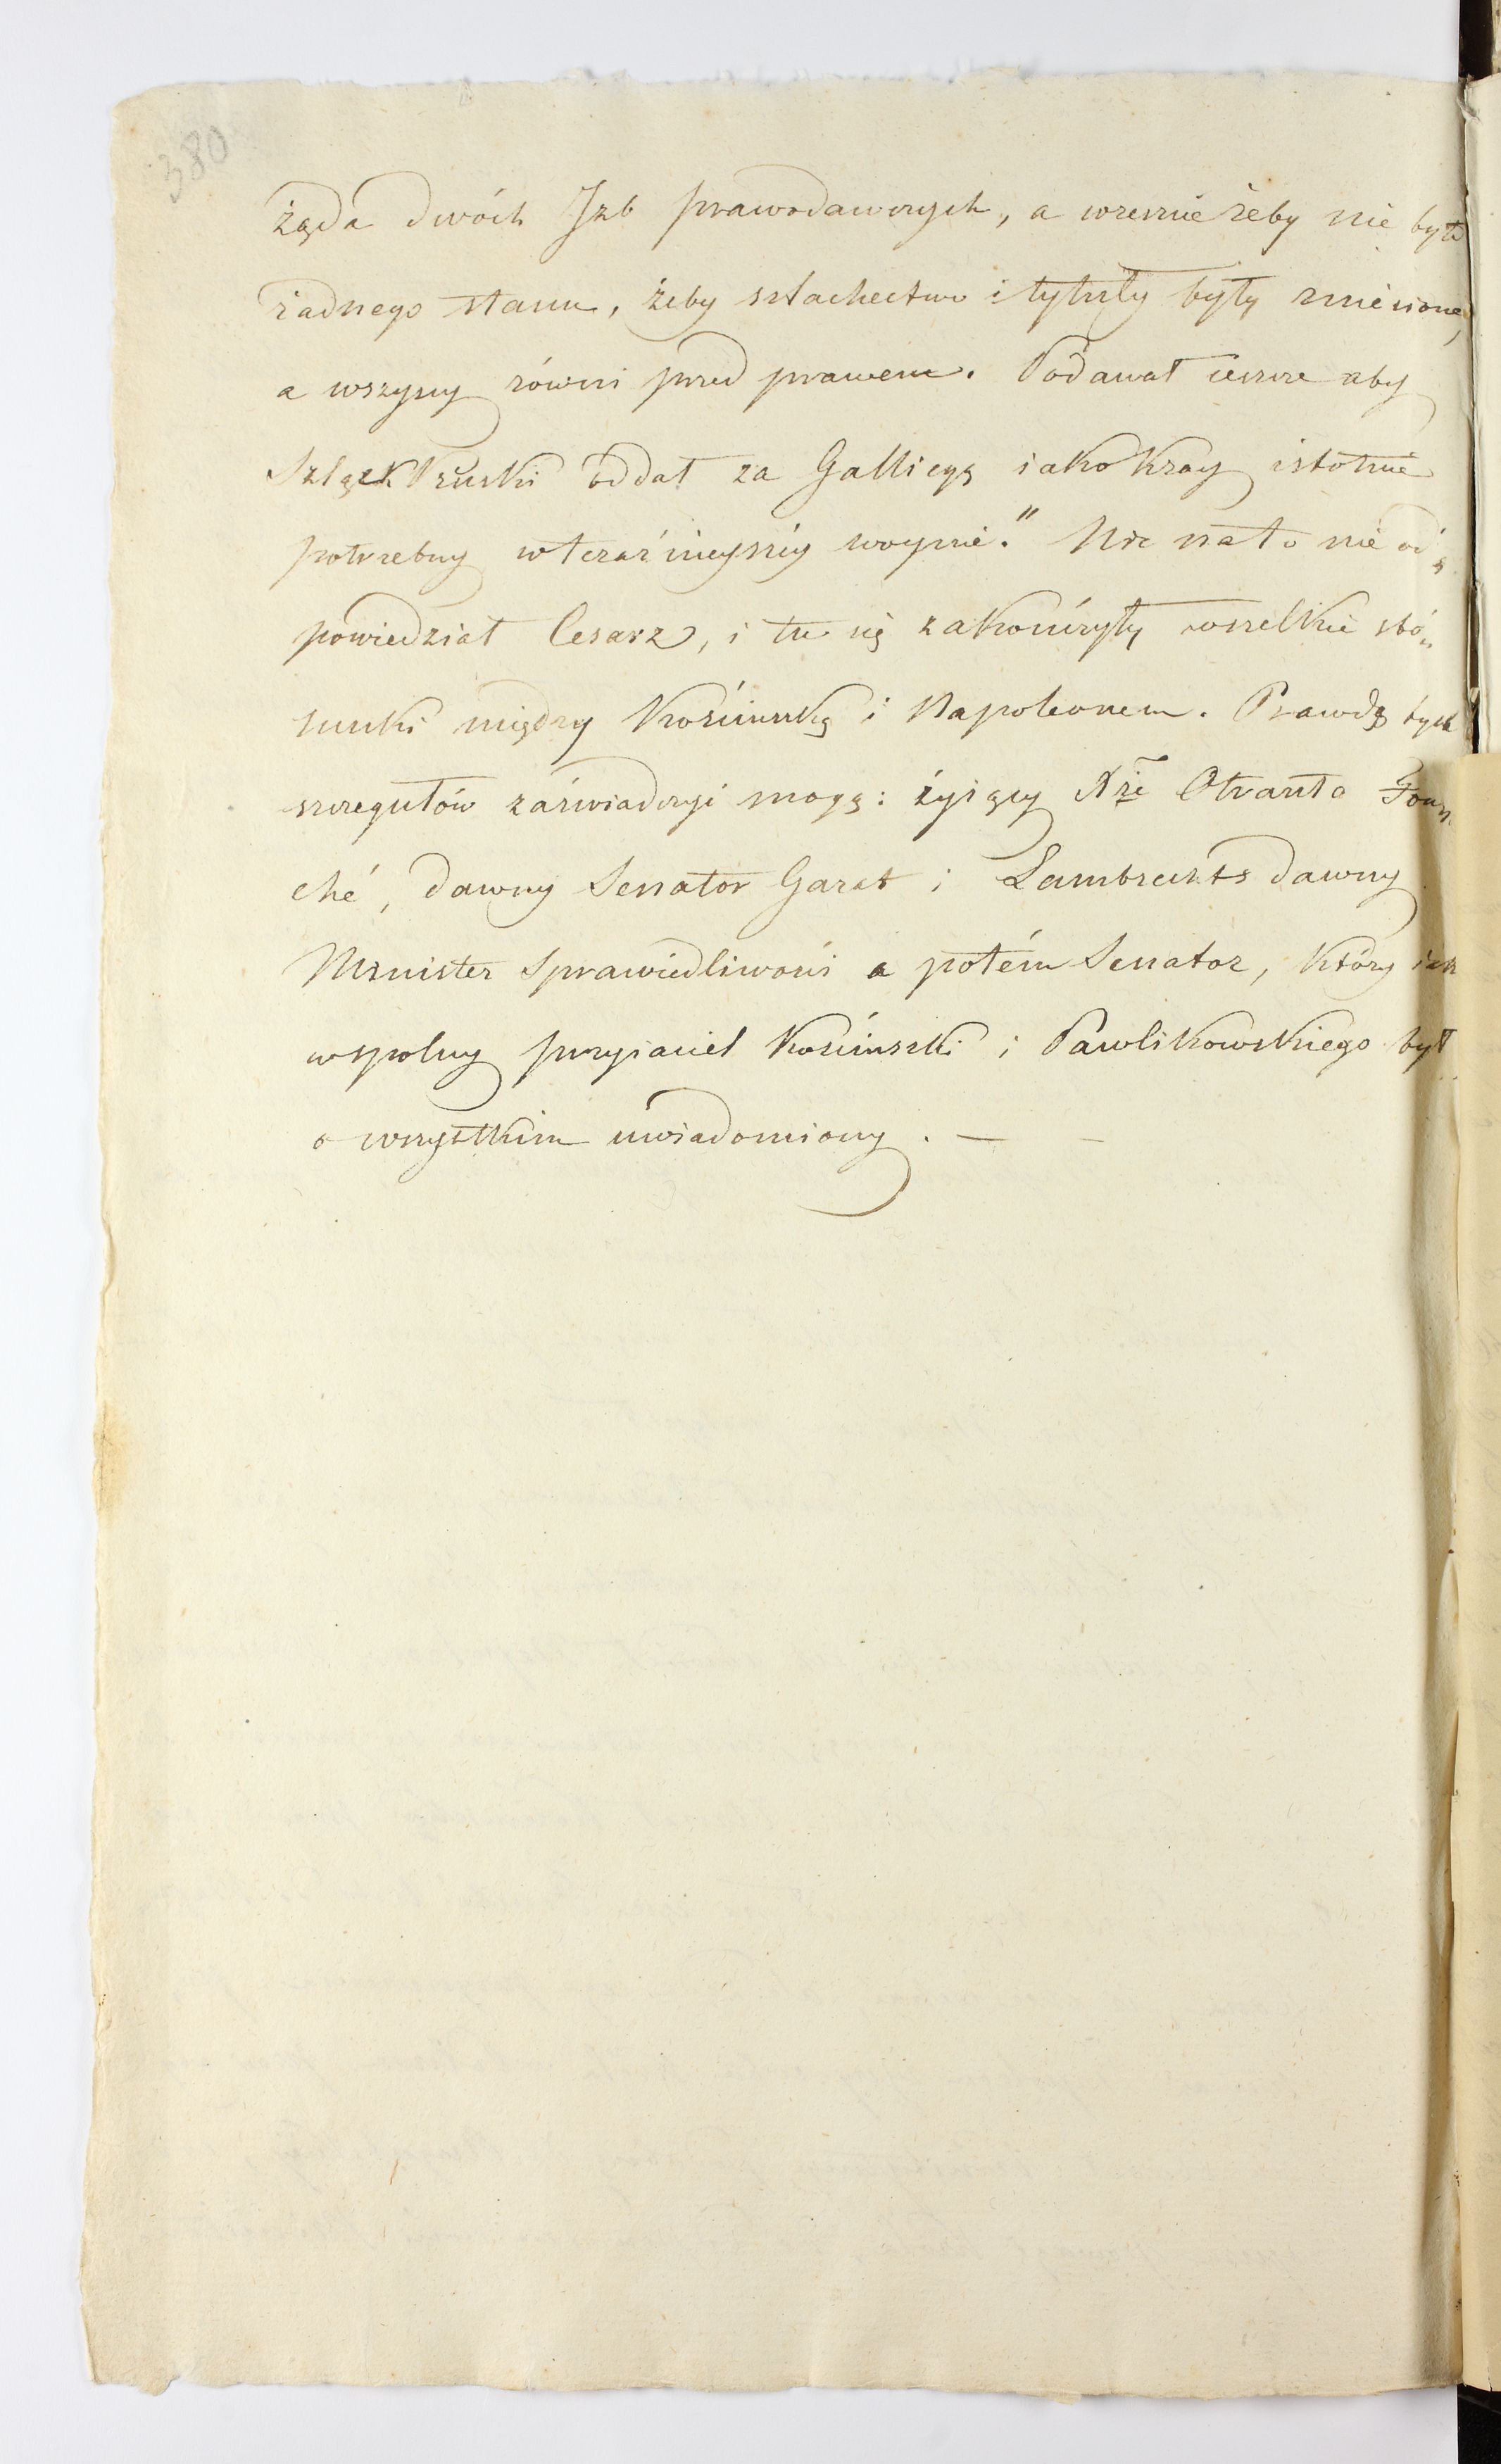 380
żąda dwóch Izb prawodawczych, a wreszcie żeby nie było
żadnego stanu, żeby szlachectwo i tytuły były zniesione,
a wszyscy równi przed prawem. Podawał ieszcze aby
Szląsk Pruski oddał za Gallicyą iako kray istotnie
potrzebny w teraźnieyszéy woynie." Nic na to nie od„
powiedział Cesarz, i tu się zakończyły wszelkie stó„
sunki między Kościuszką i Napoleonem. Prawdę tych
szczegułów zaświadczyć mogą: żyiący Xże Otranto Fou„
ché, dawny Senator Garat i Lambrechts dawny
Minister Sprawiedliwości a potém Senator, który iak
wspolny przyiaciel Kościuszki i Pawlikowskiego był
o wszystkim uwiadomiony. — —